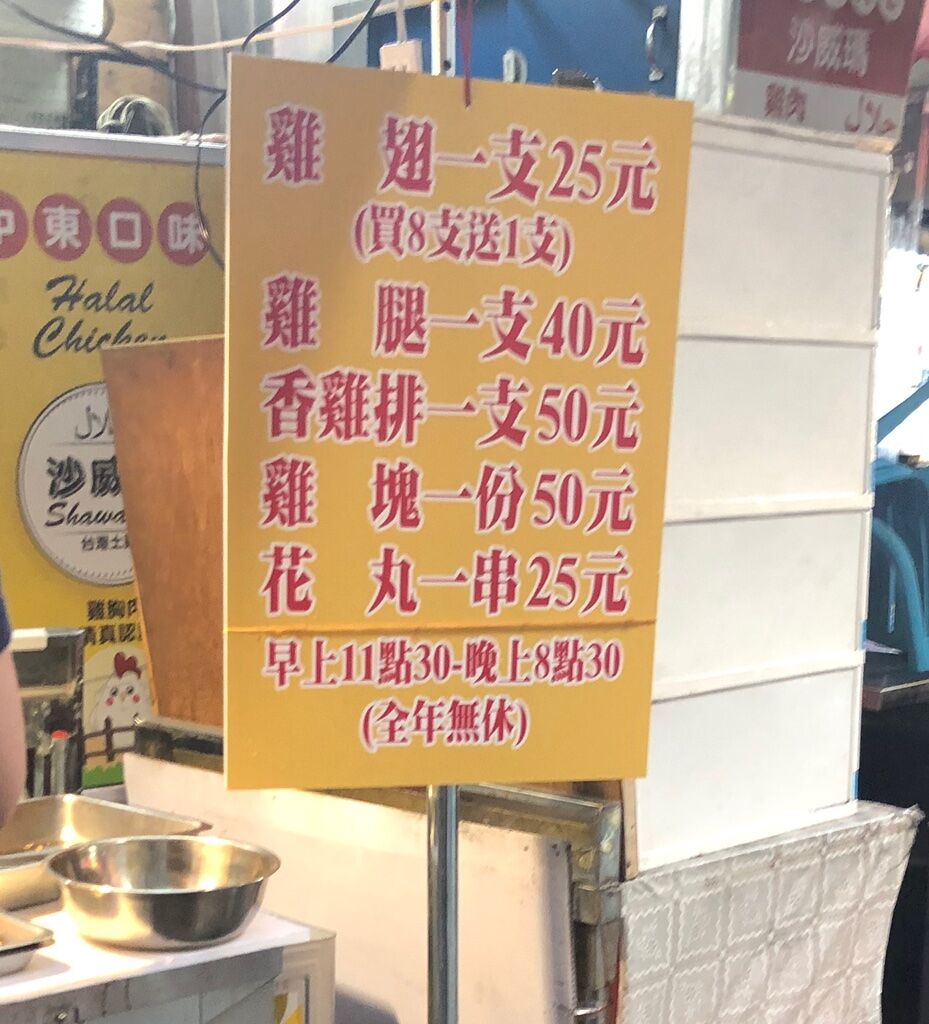 雞 翅一支25元
(買8支送1支)
雞 腿一支40元
香雞排一支50元
雞 塊一份50元
花 丸一串25元
早上11點30-晚上8點30
(全年無休)
中東口味
Halal
Chicken
沙威
台灣土
雞胸肉
清真認
沙威瑪
雞肉
حلال